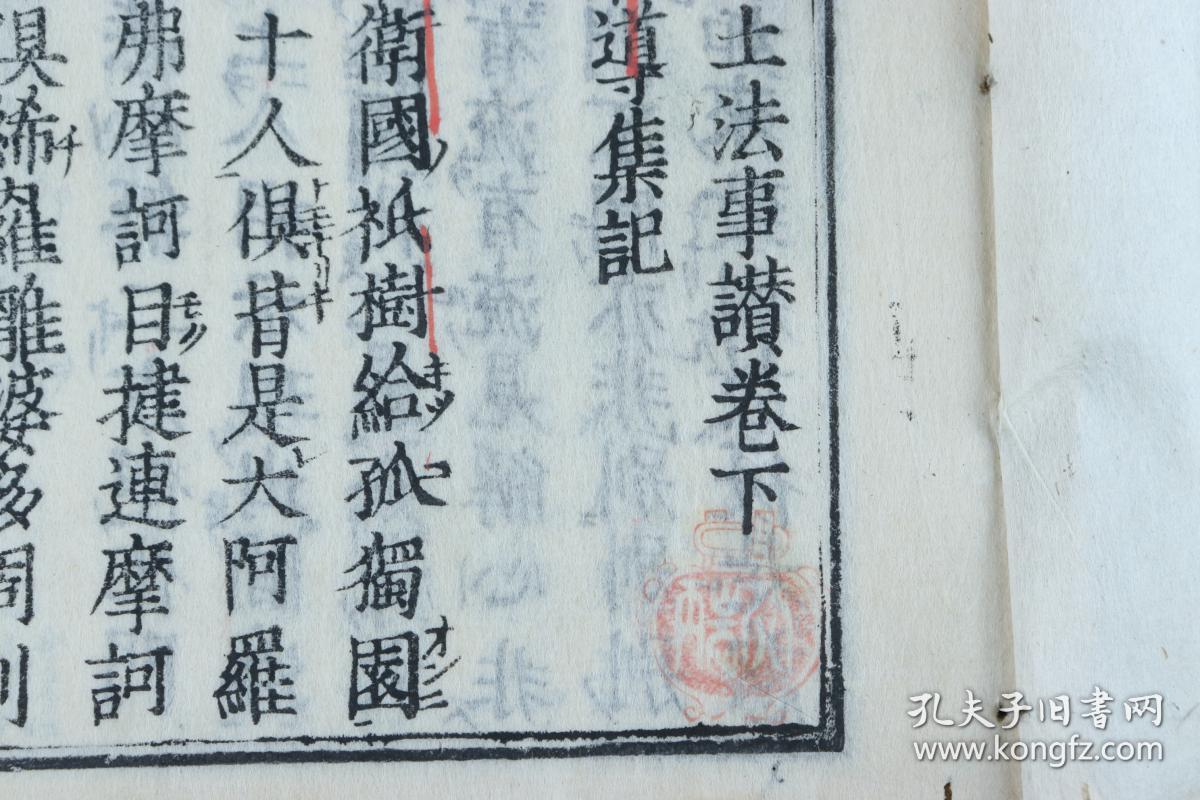 土法事讃巻下
導集記
衛國ノ祇樹給孤獨園オンニ
十人俱皆是大阿羅
弗摩訶目モツ揵連摩訶
俱絺チ羅離婆多周利
孔夫子旧书网
www.kongfz.com